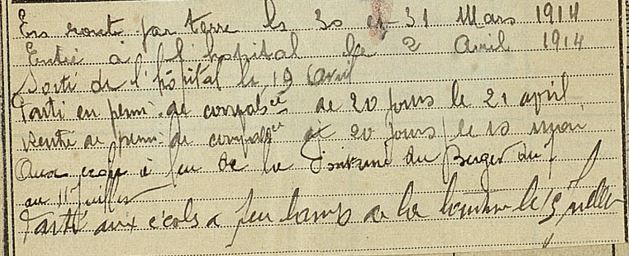 En route par terre les 30 et 31 Mars 1914
Entré à l'hopital le 2 Avril 1914
Sorti de l'hôpital le 19 Avril
Parti en perm. de conval^ce de 20 jours le 21 avril
rentré de perm. de conval^ce de 20 jours le 10 mai
Aux à feu de la du du 7
au 11 juillet
Parti aux écoles à feu camp de la le 13 juillet